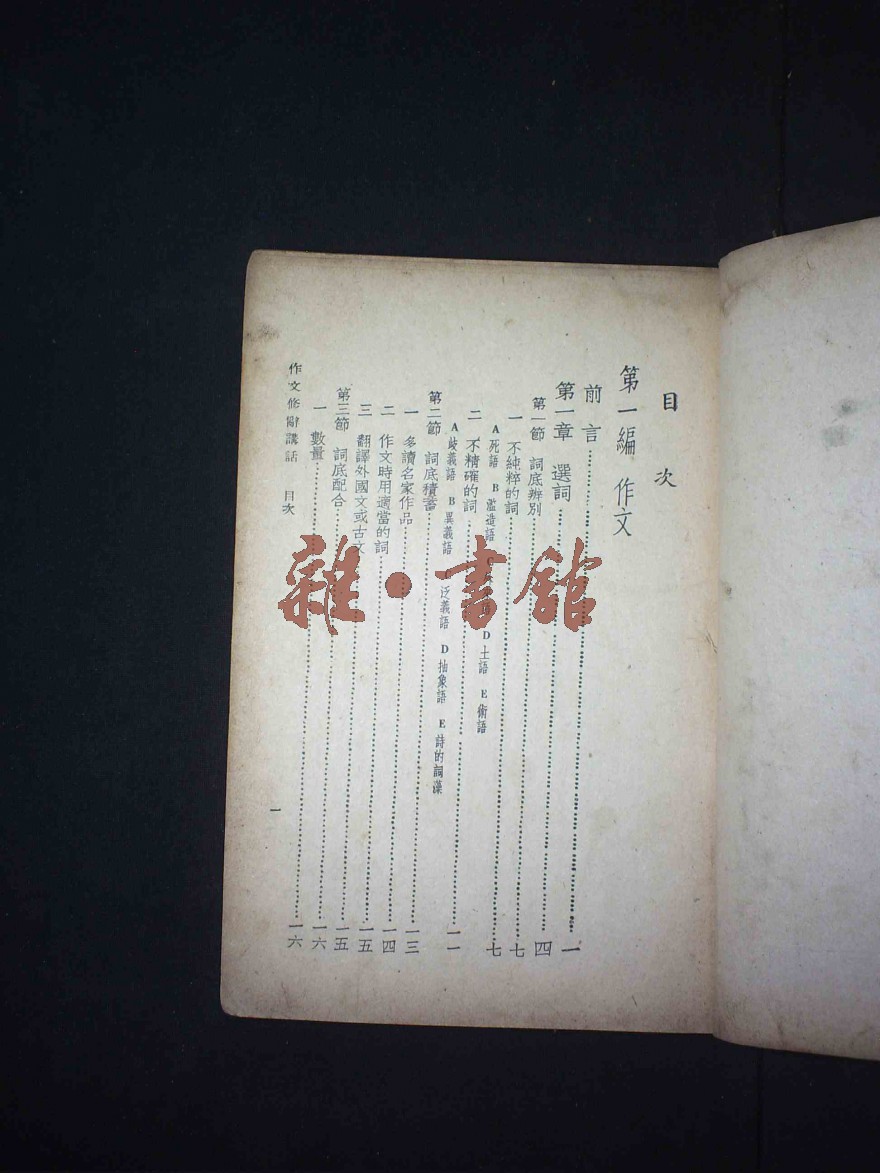 目次
第一編 作文
前言……一
第一章 選詞……四
第一節 詞底辨別……七
一 不純粹的詞……七
A死語 B濫造語 D土語 E術語
二 不精確的詞……一一
A歧義語 B異義語 泛義語 D抽象語 E詩的詞藻
第二節 詞底積蓄……一三
一 多讀名家作品……一四
二 作文時用適當的詞……一五
三 翻譯外國文或古文……一五
第三節 詞底配合……一六
一 數量……一六
作文修辭講話 目次
一
雜·書館